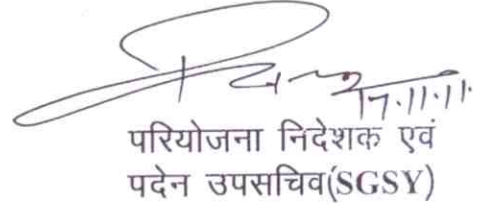 17.11.11.
परियोजना निदेशक एवं
पदेन उपसचिव(SGSY)